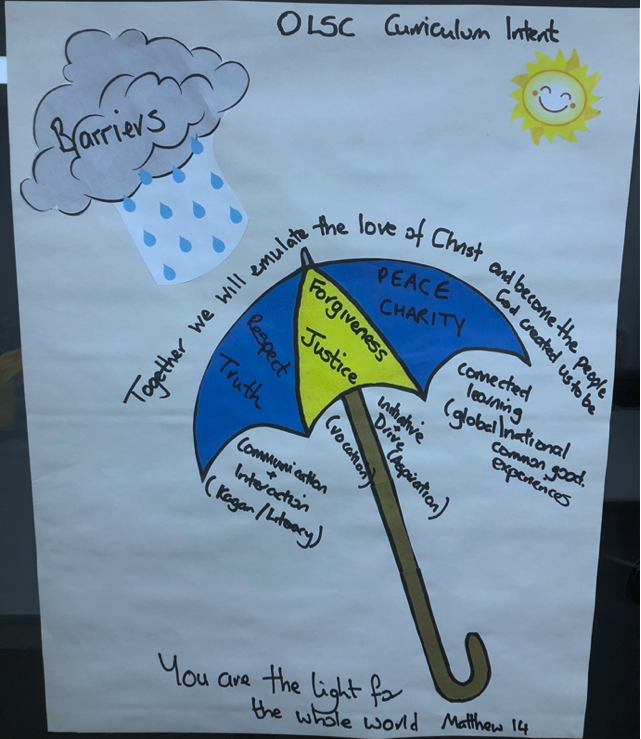 OLSC Curriculum Intent
Barriers
Together we will emulate the love of Christ and become the people
God created us to be
PEACE
CHARITY
Forgiveness
Justice
Respect
Truth
Communication
+
Interaction
(Kagan/Literacy)
(vocation)
Initiative
+
Drive
(Aspiration)
connected
learning
(global)national
common good.
experiences
You are the light for
the whole world Matthew 14